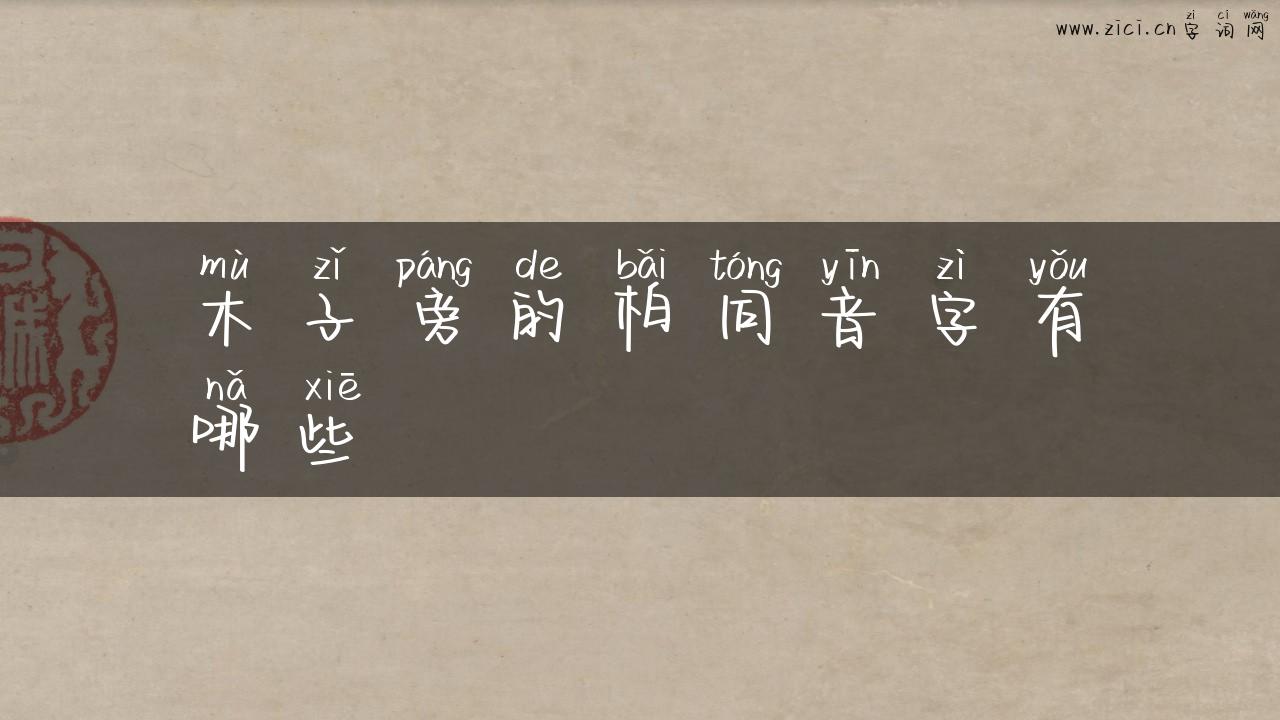 zì cí wǎng
www.zici.cn 字词网
mù zǐ páng de bǎi tóng yīn zì yǒu
木子旁的柏同音字有
nǎ xiē
哪些